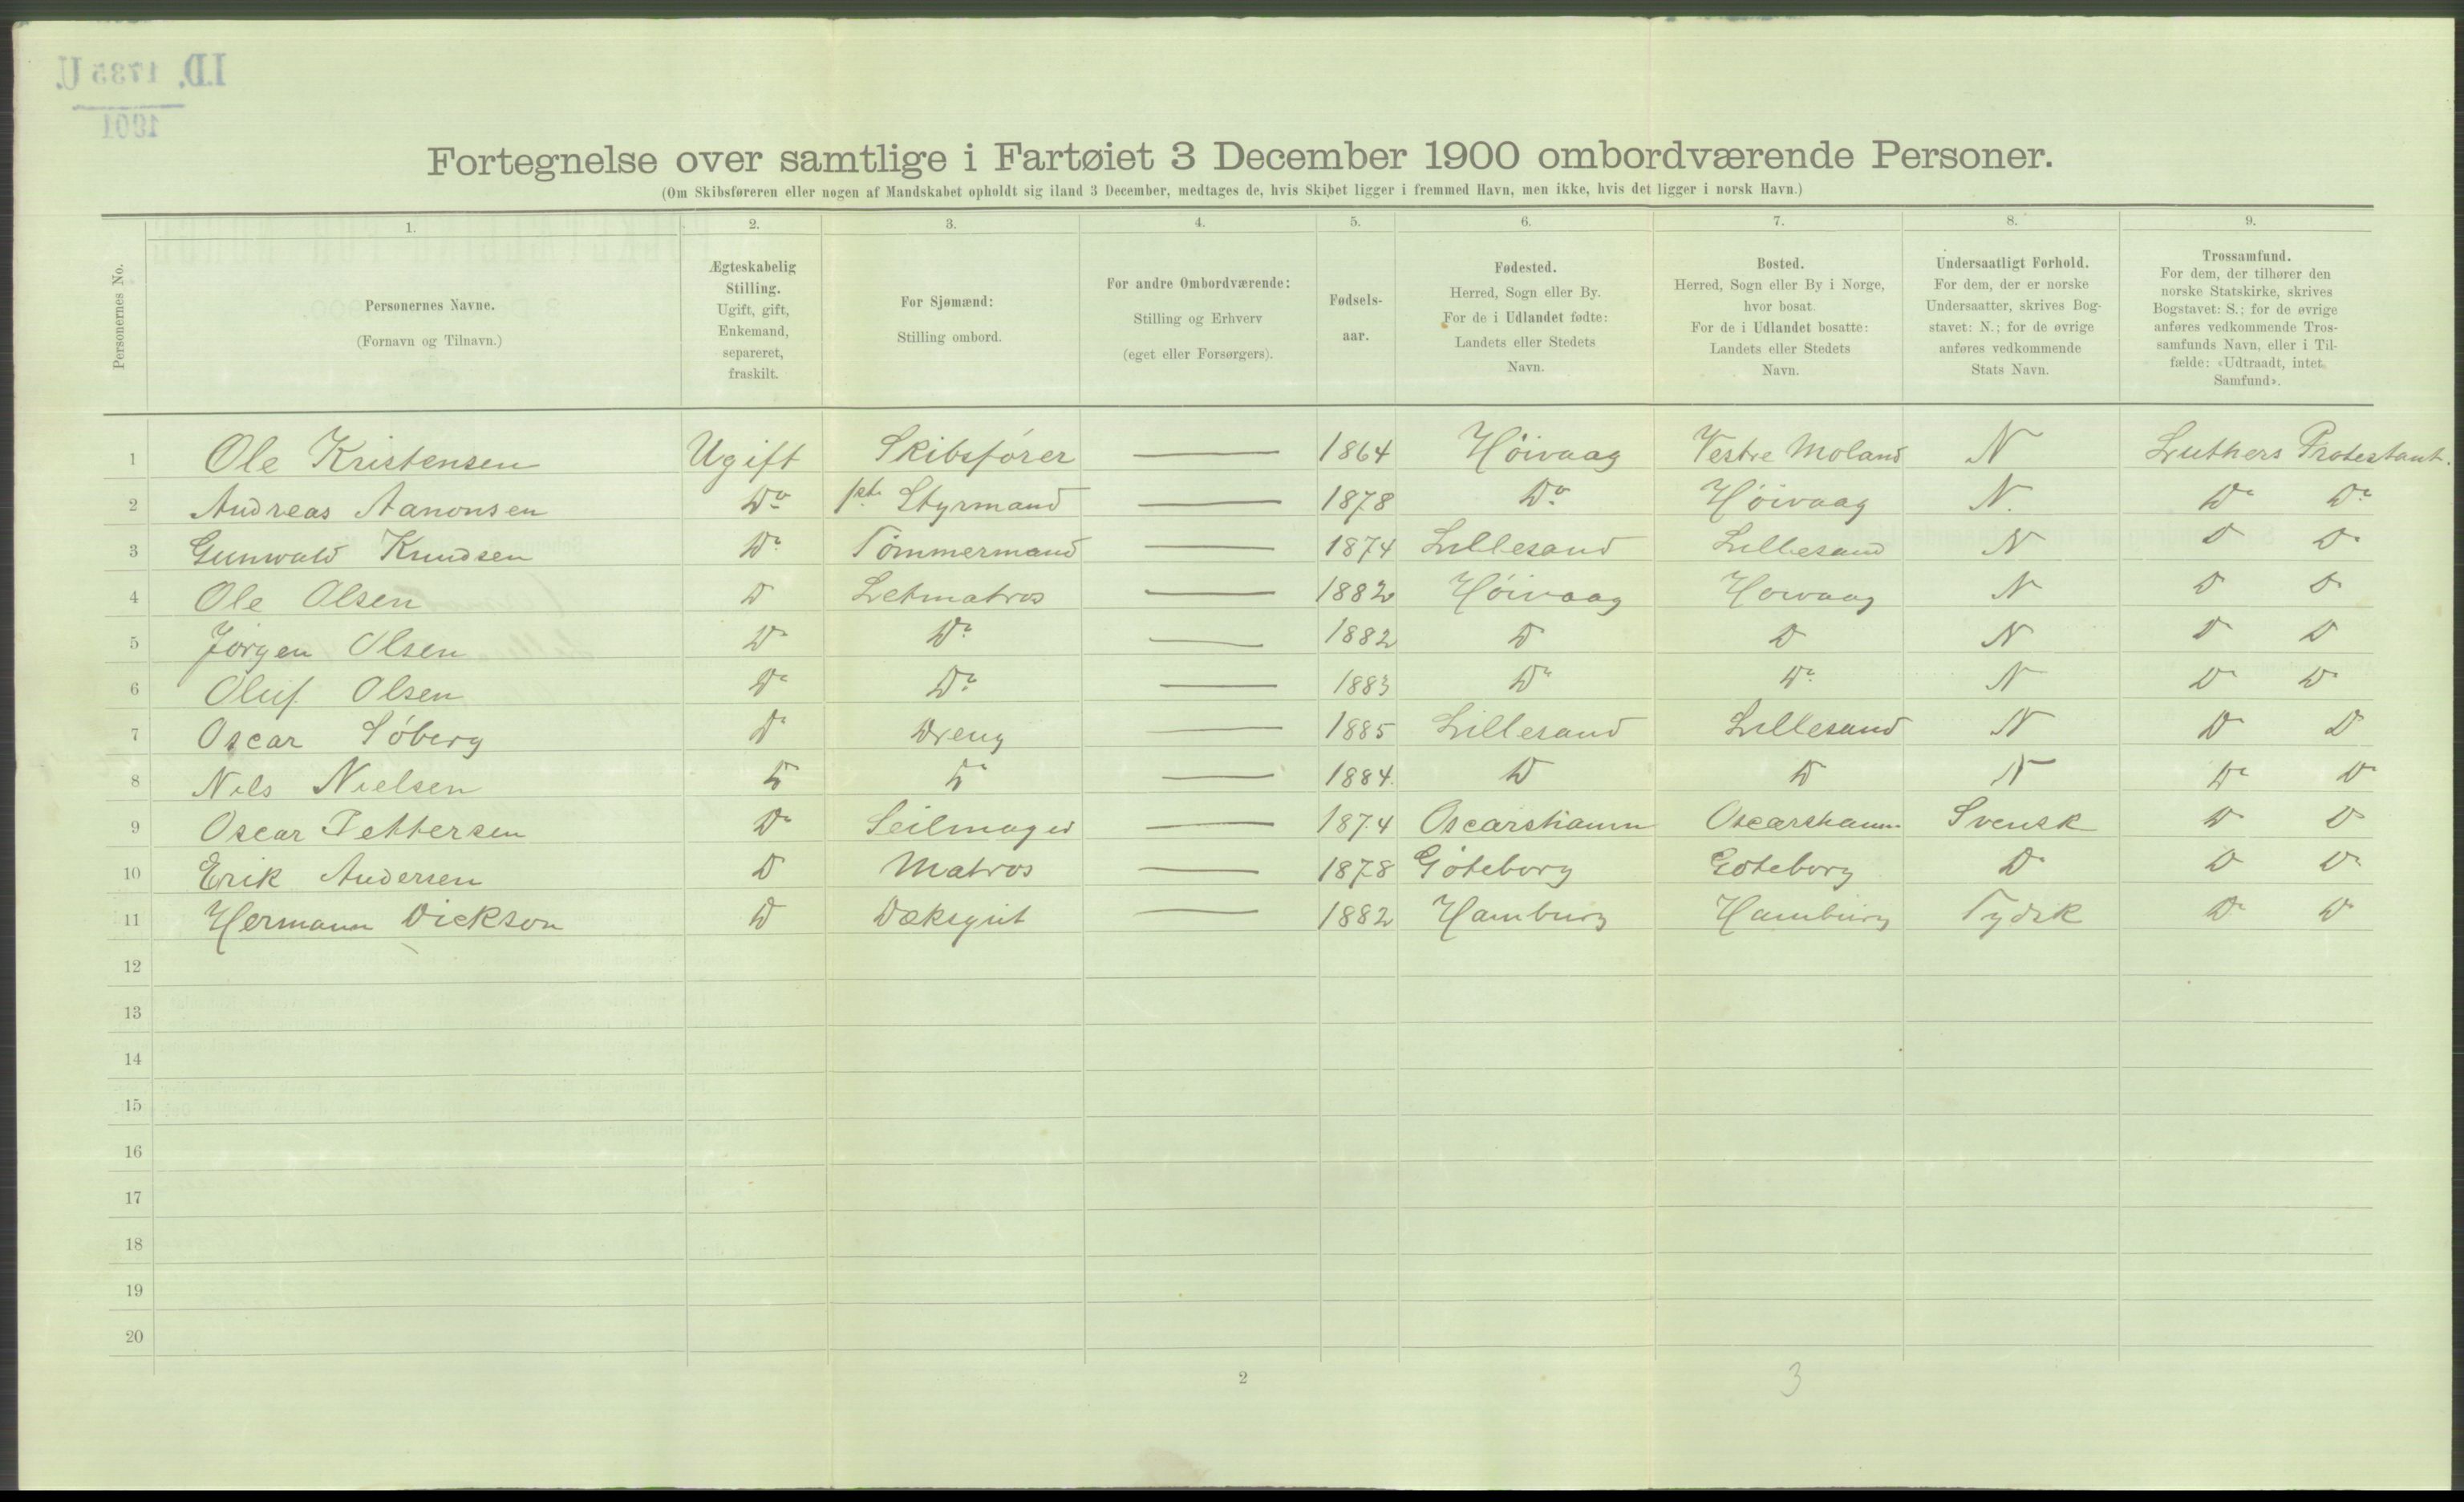 I.D. 1735 U.
1901
Fortegnelse over samtlige i Fartøiet 3 December 1900 ombordværende Personer.
(Om Skibsføreren eller nogen af Mandskabet opholdt sig iland 3 December, medtages de, hvis Skibet ligger i fremmed Havn, men ikke, hvis det ligger i norsk Havn.)
Personernes No.
1. 2. 3. 4. 5. 6. 7. 8. 9.
Personernes Navne.
(Fornavn og Tilnavn.)
Ægteskabelig
Stilling.
Ugift, gift,
Enkemand,
separeret,
fraskilt.
For Sjømænd:
Stilling ombord.
For andre Ombordværende:
Stilling og Erhverv
(eget eller Forsørgers).
Fødsels-
aar.
Fødested.
Herred, Sogn eller By.
For de i Udlandet fødte:
Landets eller Stedets
Navn.
Bosted.
Herred, Sogn eller By i Norge,
hvor bosat.
For de i Udlandet bosatte:
Landets eller Stedets
Navn.
Undersaatligt Forhold.
For dem, der er norske
Undersaatter, skrives Bog-
stavet: N.; for de øvrige
anføres vedkommende
Stats Navn.
Trossamfund.
For dem, der tilhører den
norske Statskirke, skrives
Bogstavet: S.; for de øvrige
anføres vedkommende Tros-
samfunds Navn, eller i Til-
fælde: «Udtraadt, intet
Samfund».
1 Ole Kristensen Ugift Skibsfører — 1864 Höivaag Vestre Moland N Luthers Protestant.
2 Andreas Aanonsen Do 1st. Styrmand — 1878 Do Höivaag N. Do Do
3 Gunwald Knudsen Do Tömmermand — 1874 Lillesand Lillesand N D Do
4 Ole Olsen D Letmatros — 1882 Höivaag Höivaag N D D
5 Jörgen Olsen Do Do — 1882 D D N D D
6 Oluf Olsen Do Do — 1883 Do Do N Do Do
7 Oscar Söberg Do Dreng — 1885 Lillesand Lillesand N D D
8 Nils Nielsen D Do — 1884. D D N Do Do
9 Oscar Pettersen Do Seilmager — 1874 Oscarshamn Oscarshamn Svensk D D
10 Erik Andersen D Matros — 1878 Göteborg Göteborg D D Do
11 Hermann Dickson D Dæksgut — 1882 Hamburg Hamburg Tydsk Do Do
12
13
14
15
16
17
18
19
20
2 3